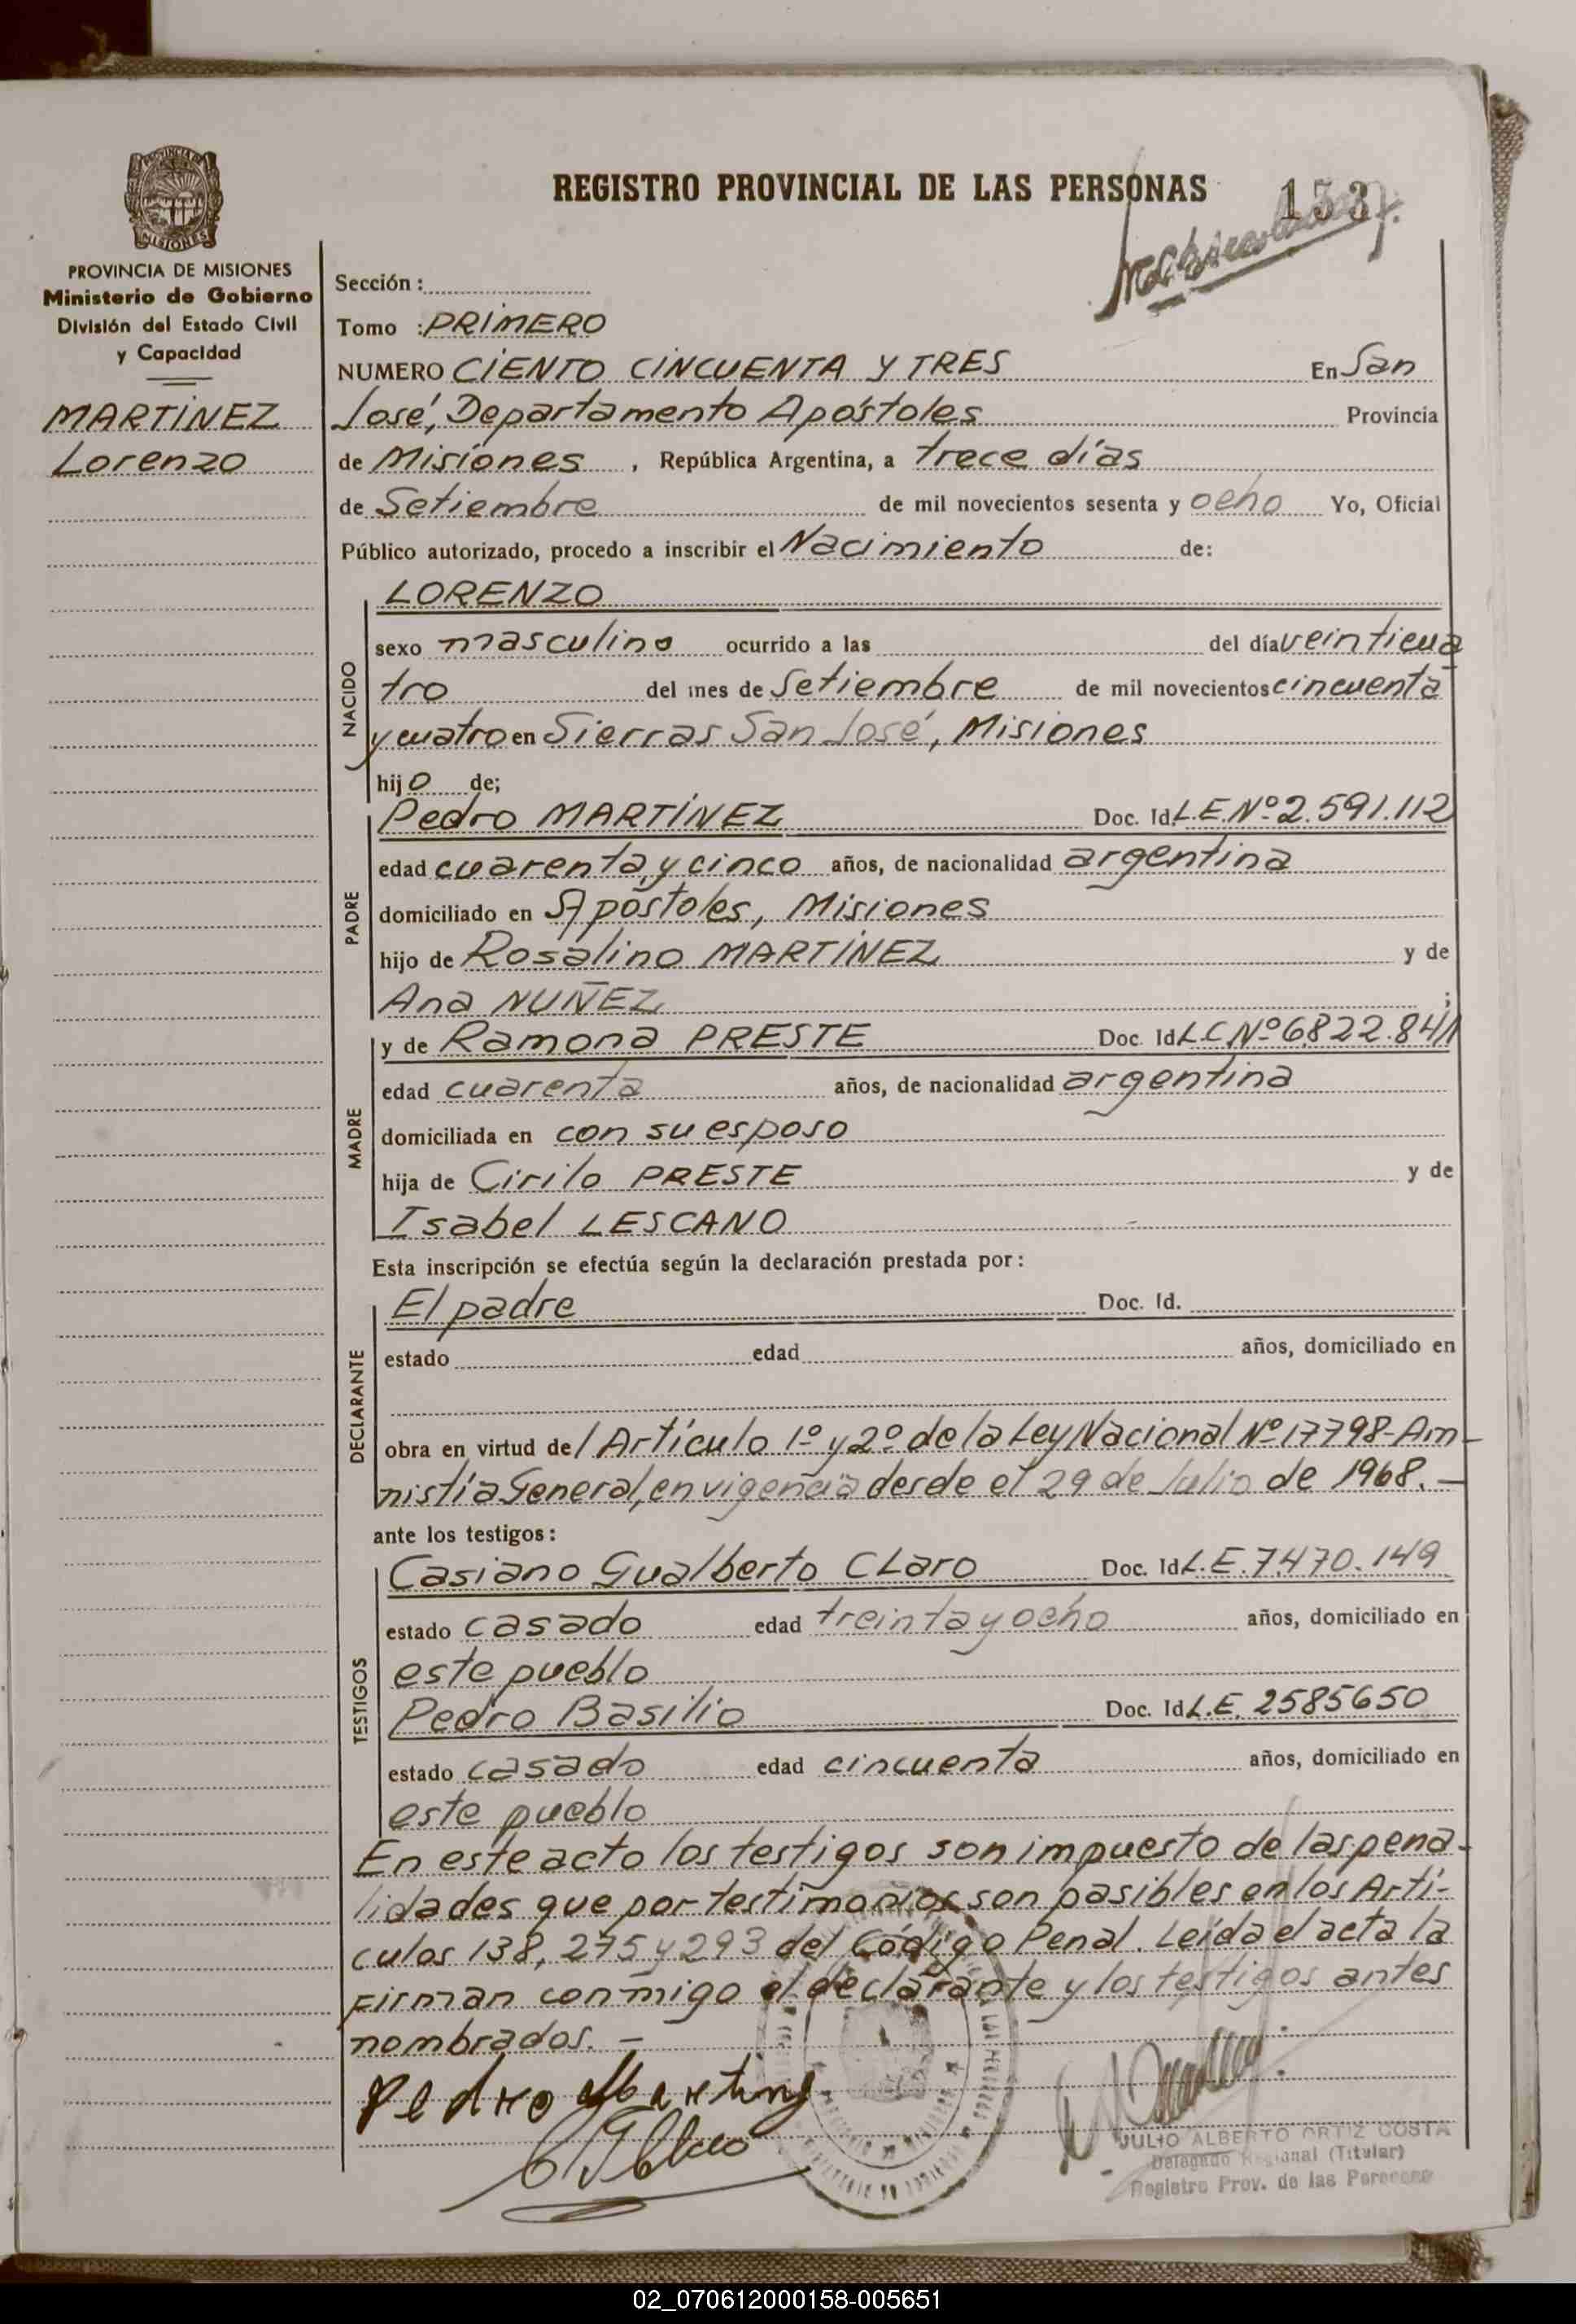 REGISTRO PROVINCIAL DE LAS PERSONAS
153
PROVINCIA DE MISIONES
Ministerio de Gobierno
División del Estado Civil
y Capacidad
MARTÍNEZ
Lorenzo
Sección :
Tomo : PRIMERO
NUMERO CIENTO CINCUENTA Y TRES En San
José, Departamento Apóstoles Provincia
de Misiones , República Argentina, a trece días
de Setiembre de mil novecientos sesenta y ocho Yo, Oficial
Público autorizado, procedo a inscribir el Nacimiento de:
LORENZO
NACIDO
sexo masculino ocurrido a las del día veinticua
tro del mes de Setiembre de mil novecientos cincuenta
y cuatro en Sierras San José, Misiones
hijo de;
PADRE
Pedro MARTÍNEZ Doc. Id. L.E.Nº 2.591.112
edad cuarenta y cinco años, de nacionalidad argentina
domiciliado en Apóstoles, Misiones
hijo de Rosalino MARTÍNEZ y de
Ana NUÑEZ ;
MADRE
y de Ramona PRESTE Doc. Id L.C.Nº 6.822.841
edad cuarenta años, de nacionalidad argentina
domiciliada en con su esposo
hija de Cirilo PRESTE y de
Isabel LESCANO
Esta inscripción se efectúa según la declaración prestada por :
DECLARANTE
El padre Doc. Id.
estado edad años, domiciliado en
obra en virtud del Artículo 1º y 2º de la Ley Nacional Nº 17798-Am-
nistía General, en vigencia desde el 29 de Julio de 1968. -
ante los testigos :
TESTIGOS
Casiano Gualberto CLaro Doc. Id L.E. 7.470.149
estado casado edad treinta y ocho años, domiciliado en
este pueblo
Pedro Basilio Doc. Id L.E. 2585650
estado casado edad cincuenta años, domiciliado en
este pueblo
En este acto los testigos son impuesto de las pena-
lidades que por testimonios son pasibles en los Artí-
culos 138, 275 y 293 del Código Penal. Leída el acta la
Firman conmigo el declarante y los testigos antes
nombrados. -
Pedro
JULIO ALBERTO ORTIZ COSTA
Delegado Regional (Titular)
Registro Prov. de las Personas
02_070612000158-005651